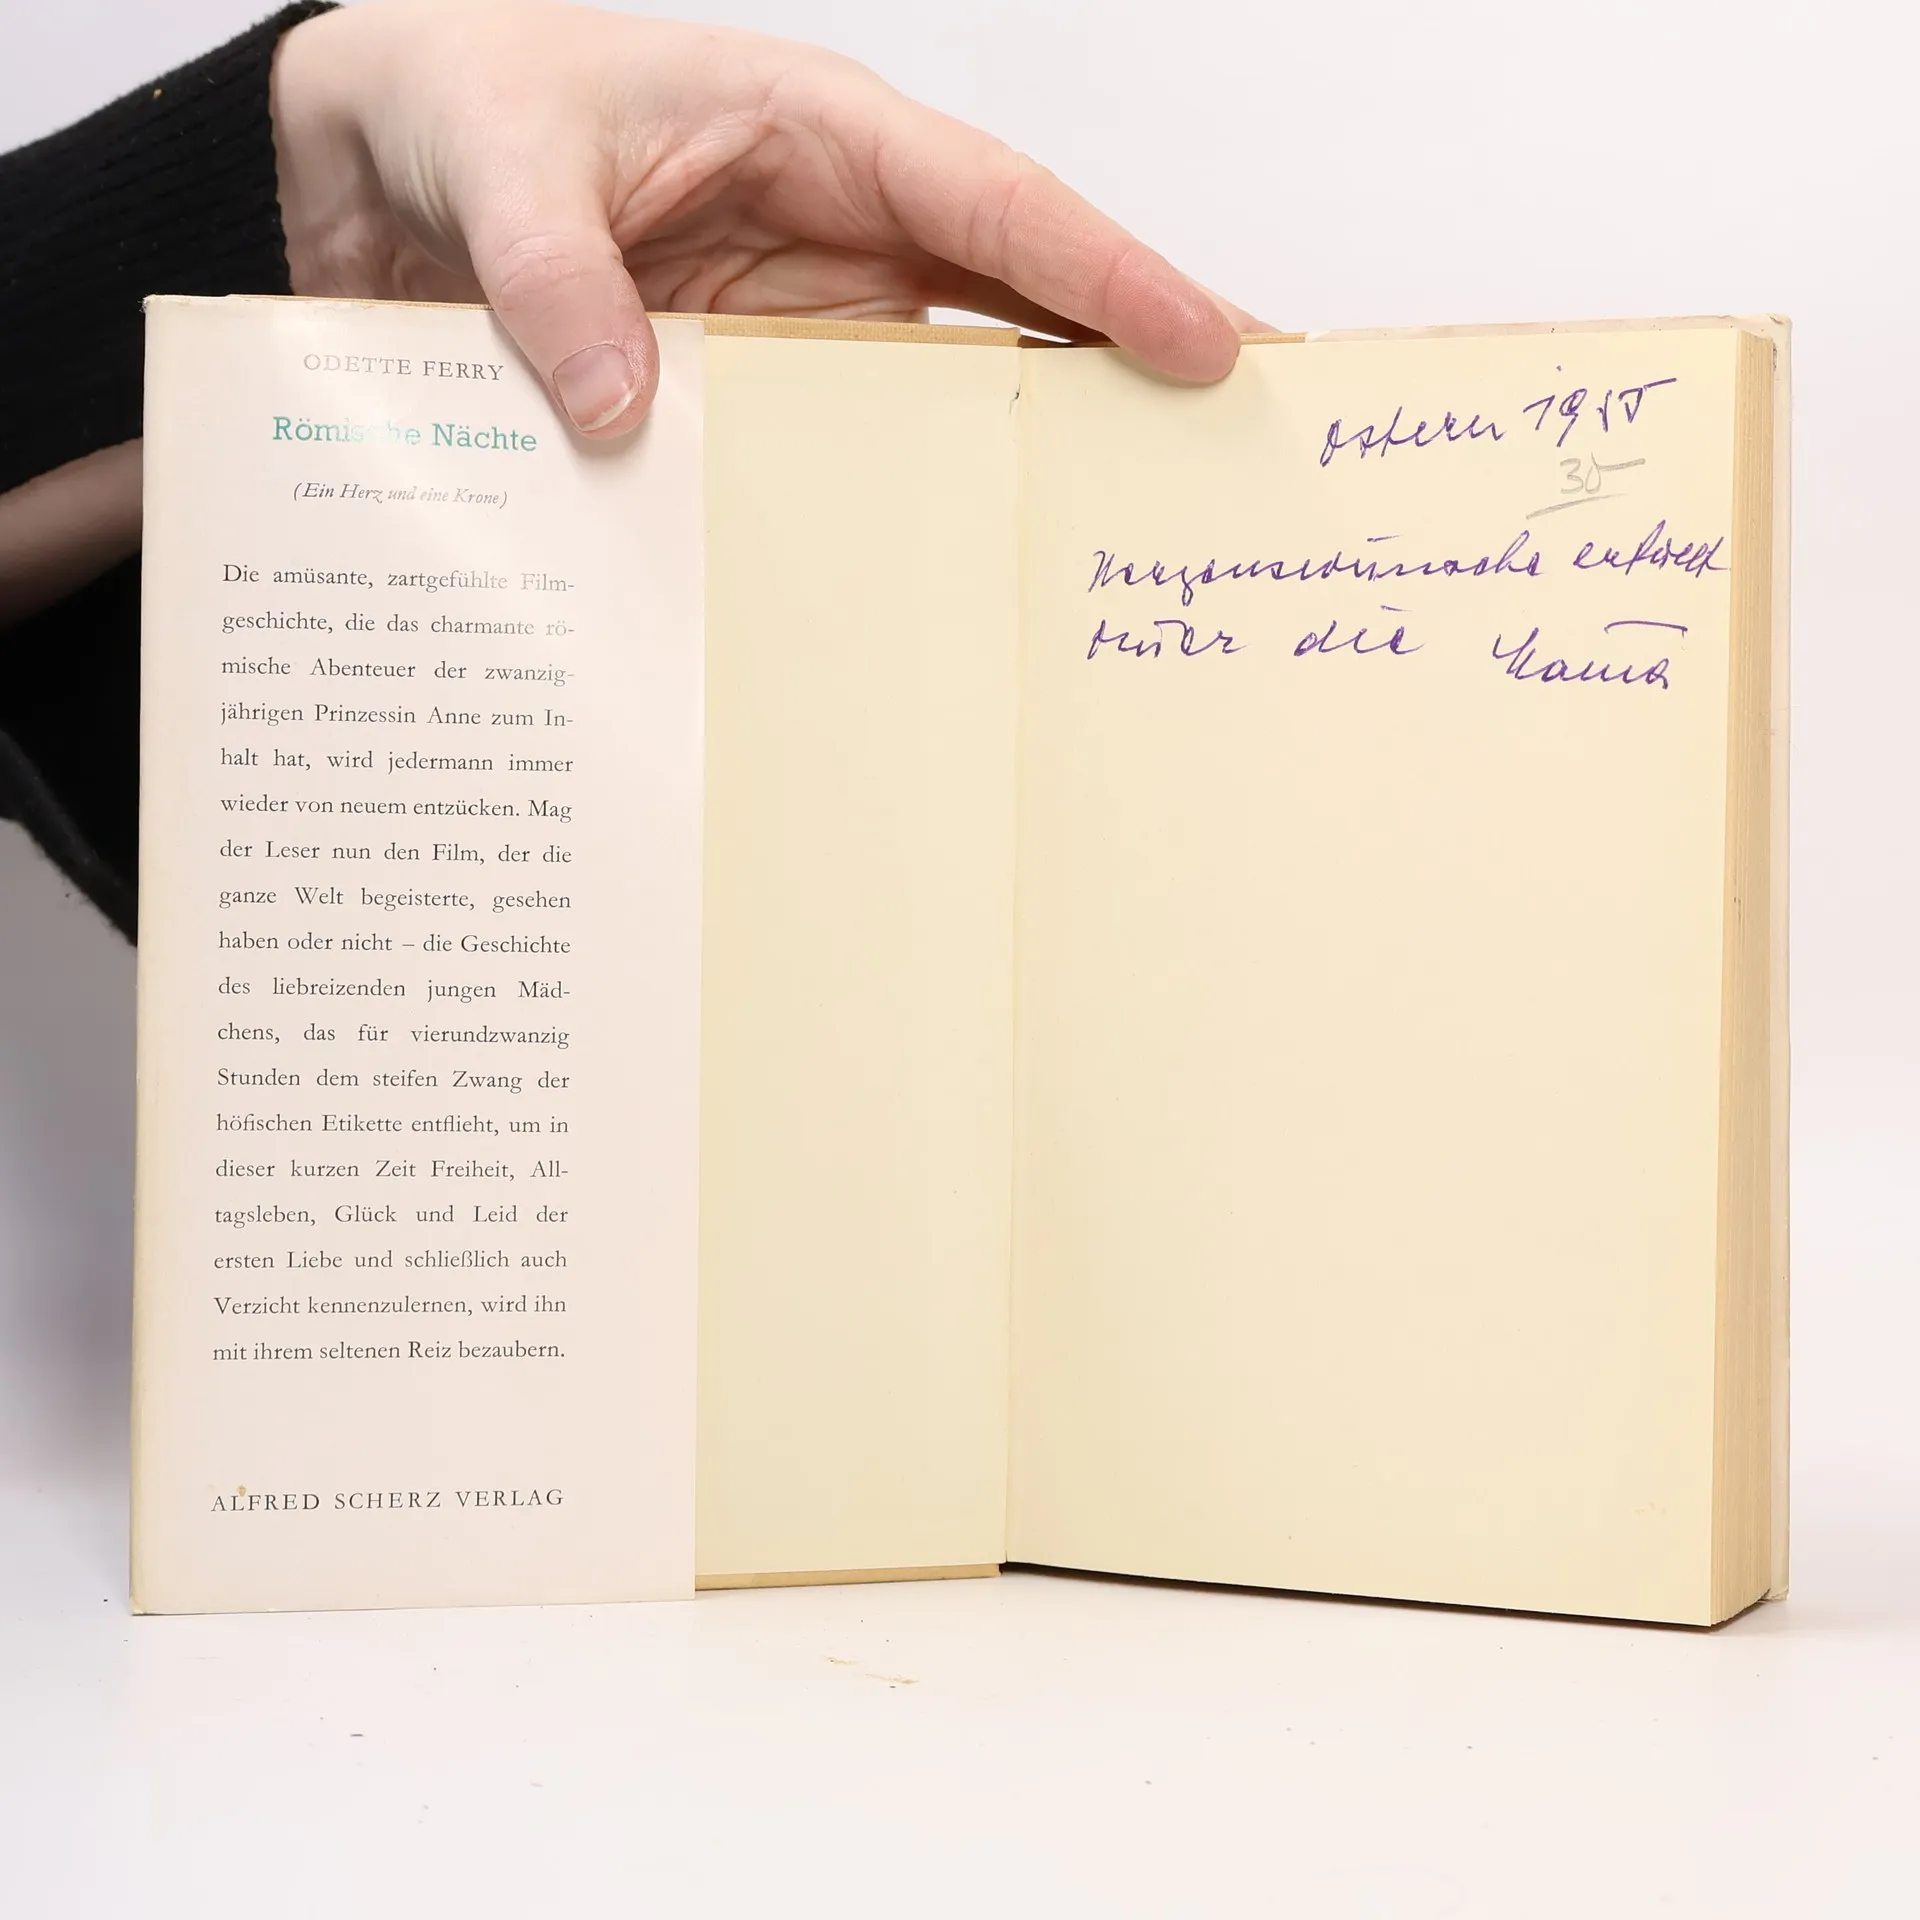 ODETTE FERRY
Römische Nächte
(Ein Herz und eine Krone)
Die amüsante, zartgefühlte Film-
geschichte, die das charmante rö-
mische Abenteuer der zwanzig-
jährigen Prinzessin Anne zum In-
halt hat, wird jedermann immer
wieder von neuem entzücken. Mag
der Leser nun den Film, der die
ganze Welt begeisterte, gesehen
haben oder nicht – die Geschichte
des liebreizenden jungen Mäd-
chens, das für vierundzwanzig
Stunden dem steifen Zwang der
höfischen Etikette entflieht, um in
dieser kurzen Zeit Freiheit, All-
tagsleben, Glück und Leid der
ersten Liebe und schließlich auch
Verzicht kennenzulernen, wird ihn
mit ihrem seltenen Reiz bezaubern.
ALFRED SCHERZ VERLAG
Ostern 1955
Herzenswünsche erfüllt
immer die Mama